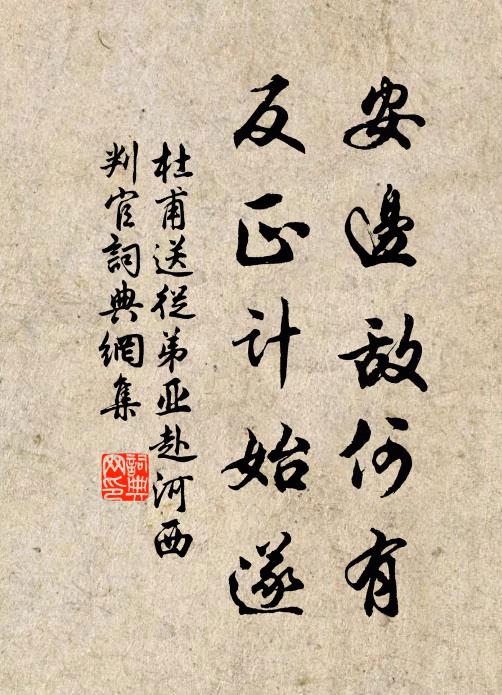 安邊敌何有
反正計始遂
杜甫送從弟亚赴河西
判官詞典網集
詞典
网印